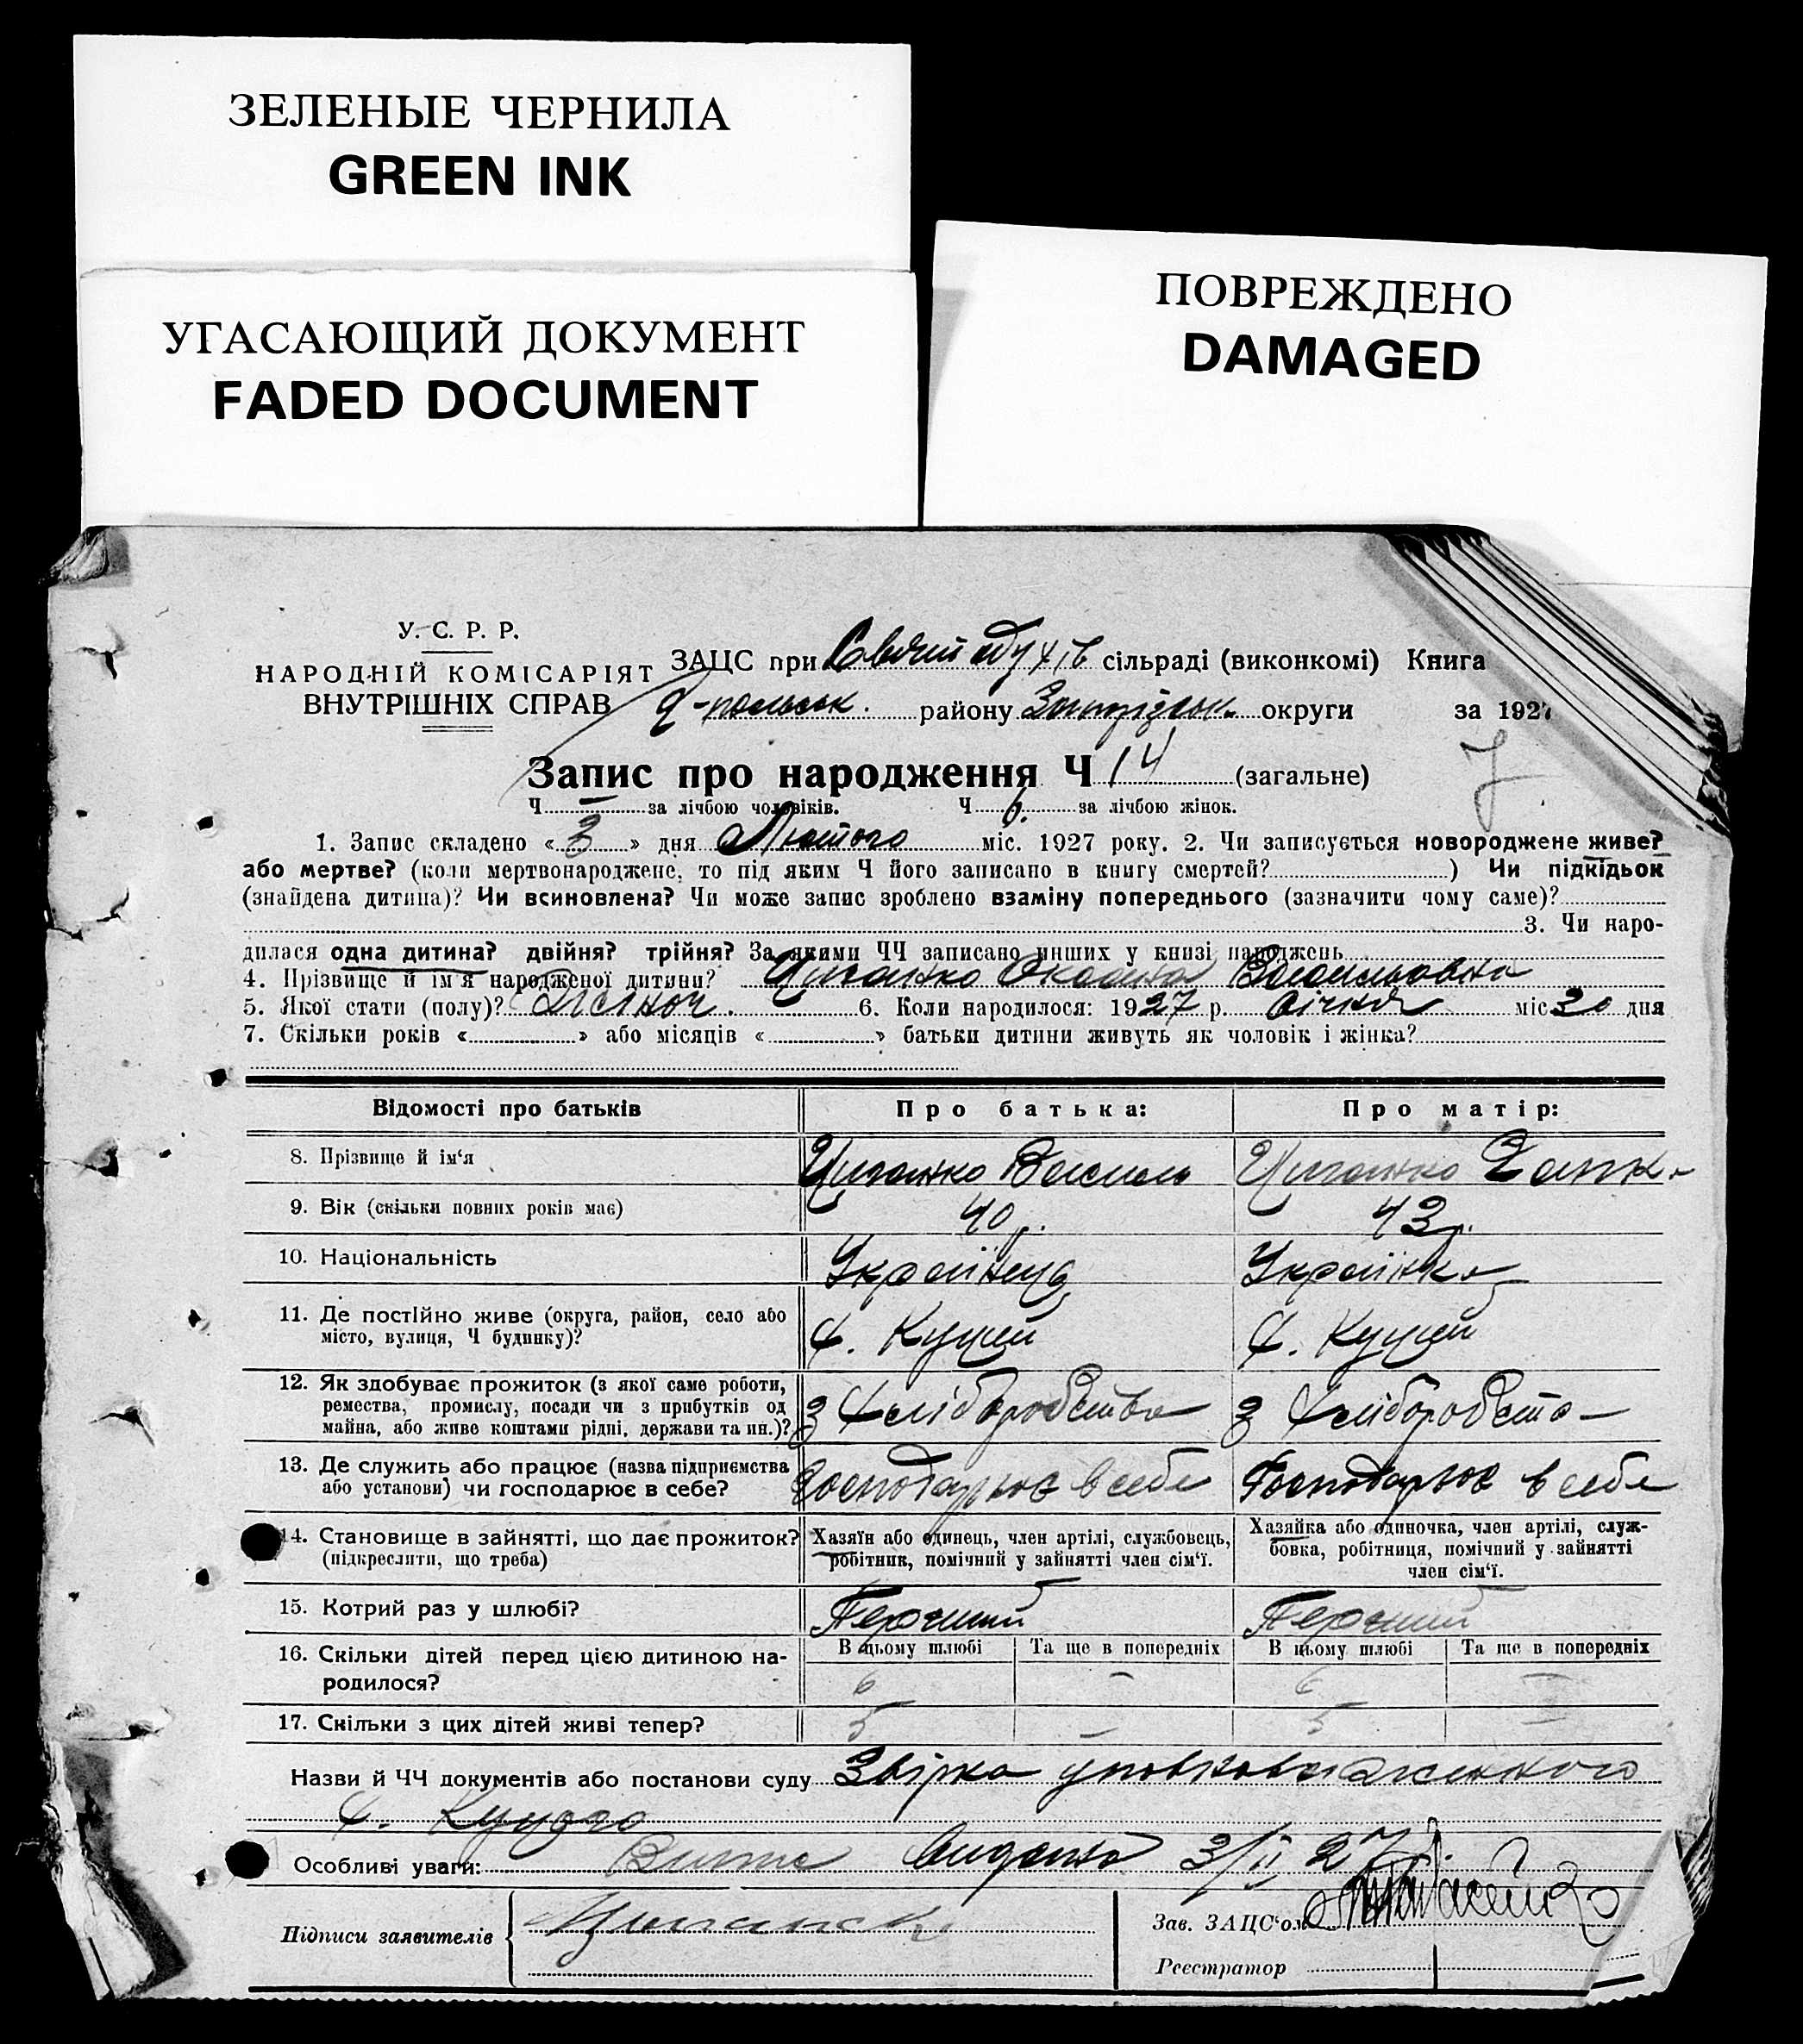 ЗЕЛЕНЫЕ ЧЕРНИЛА
GREEN INK
УГАСАЮЩИЙ ДОКУМЕНТ
FADED DOCUMENT
ПОВРЕЖДЕНО
DAMAGED
У. С. Р. Р.
НАРОДНІЙ КОМІСАРІЯТ
ВНУТРІШНІХ СПРАВ
ЗАЦС при сільраді (виконкомі) Книга
району округи за 1927
Запис про народження Ч 14 (загальне)
Ч — за лічбою чоловіків. Ч 6. за лічбою жінок.
1. Запис складено «3» дня Лютого міс. 1927 року. 2. Чи записується новороджене живе?
або мертве? (коли мертвонароджене, то під яким Ч його записано в книгу смертей?) Чи підкідьок
(знайдена дитина)? Чи всиновлена? Чи може запис зроблено взаміну попереднього (зазначити чому саме)?
3. Чи наро-
дилася одна дитина? двійня? трійня? За якими ЧЧ записано инших у книзі народжень
4. Прізвище й ім'я народженої дитини? Циганко Оксана Василівна
5. Якої стати (полу)? Жіноч. 6. Коли народилося: 1927 р. Січня міс 30 дня
7. Скільки років « » або місяців « » батьки дитини живуть як чоловік і жінка?
Відомості про батьків Про батька: Про матір:
8. Прізвище й ім'я Циганко Василь Циганко Ганна
9. Вік (скільки повних років має) 40 р. 43 р.
10. Національність Українець Українка
11. Де постійно живе (округа, район, село або
місто, вулиця, Ч будинку)? х. Куцей х. Куцей
12. Як здобуває прожиток (з якої саме роботи,
ремества, промислу, посади чи з прибутків од
майна, або живе коштами рідні, держави та ин.)? З Хліборобства З Хліборобста
13. Де служить або працює (назва підприємства
або установи) чи господарює в себе? Господарює в себе Господарює в себе
14. Становище в зайнятті, що дає прожиток?
(підкреслити, що треба)
Хазяїн або одинець, член артілі, службовець,
робітник, помічний у зайнятті член сім'ї.
Хазяйка або одиночка, член артілі, служ-
бовка, робітниця, помічний у зайнятті
член сім'ї.
15. Котрий раз у шлюбі? Перший Перший
В цьому шлюбі Та ще в попередніх В цьому шлюбі Та ще в попередніх
16. Скільки дітей перед цією дитиною на-
родилося? 6 — 6 —
17. Скільки з цих дітей живі тепер? 5 — 5 —
Назви й ЧЧ документів або постанови суду
Особливі уваги: 3/II 27
Підписи заявителів
Зав. ЗАЦС'ом
Реєстратор